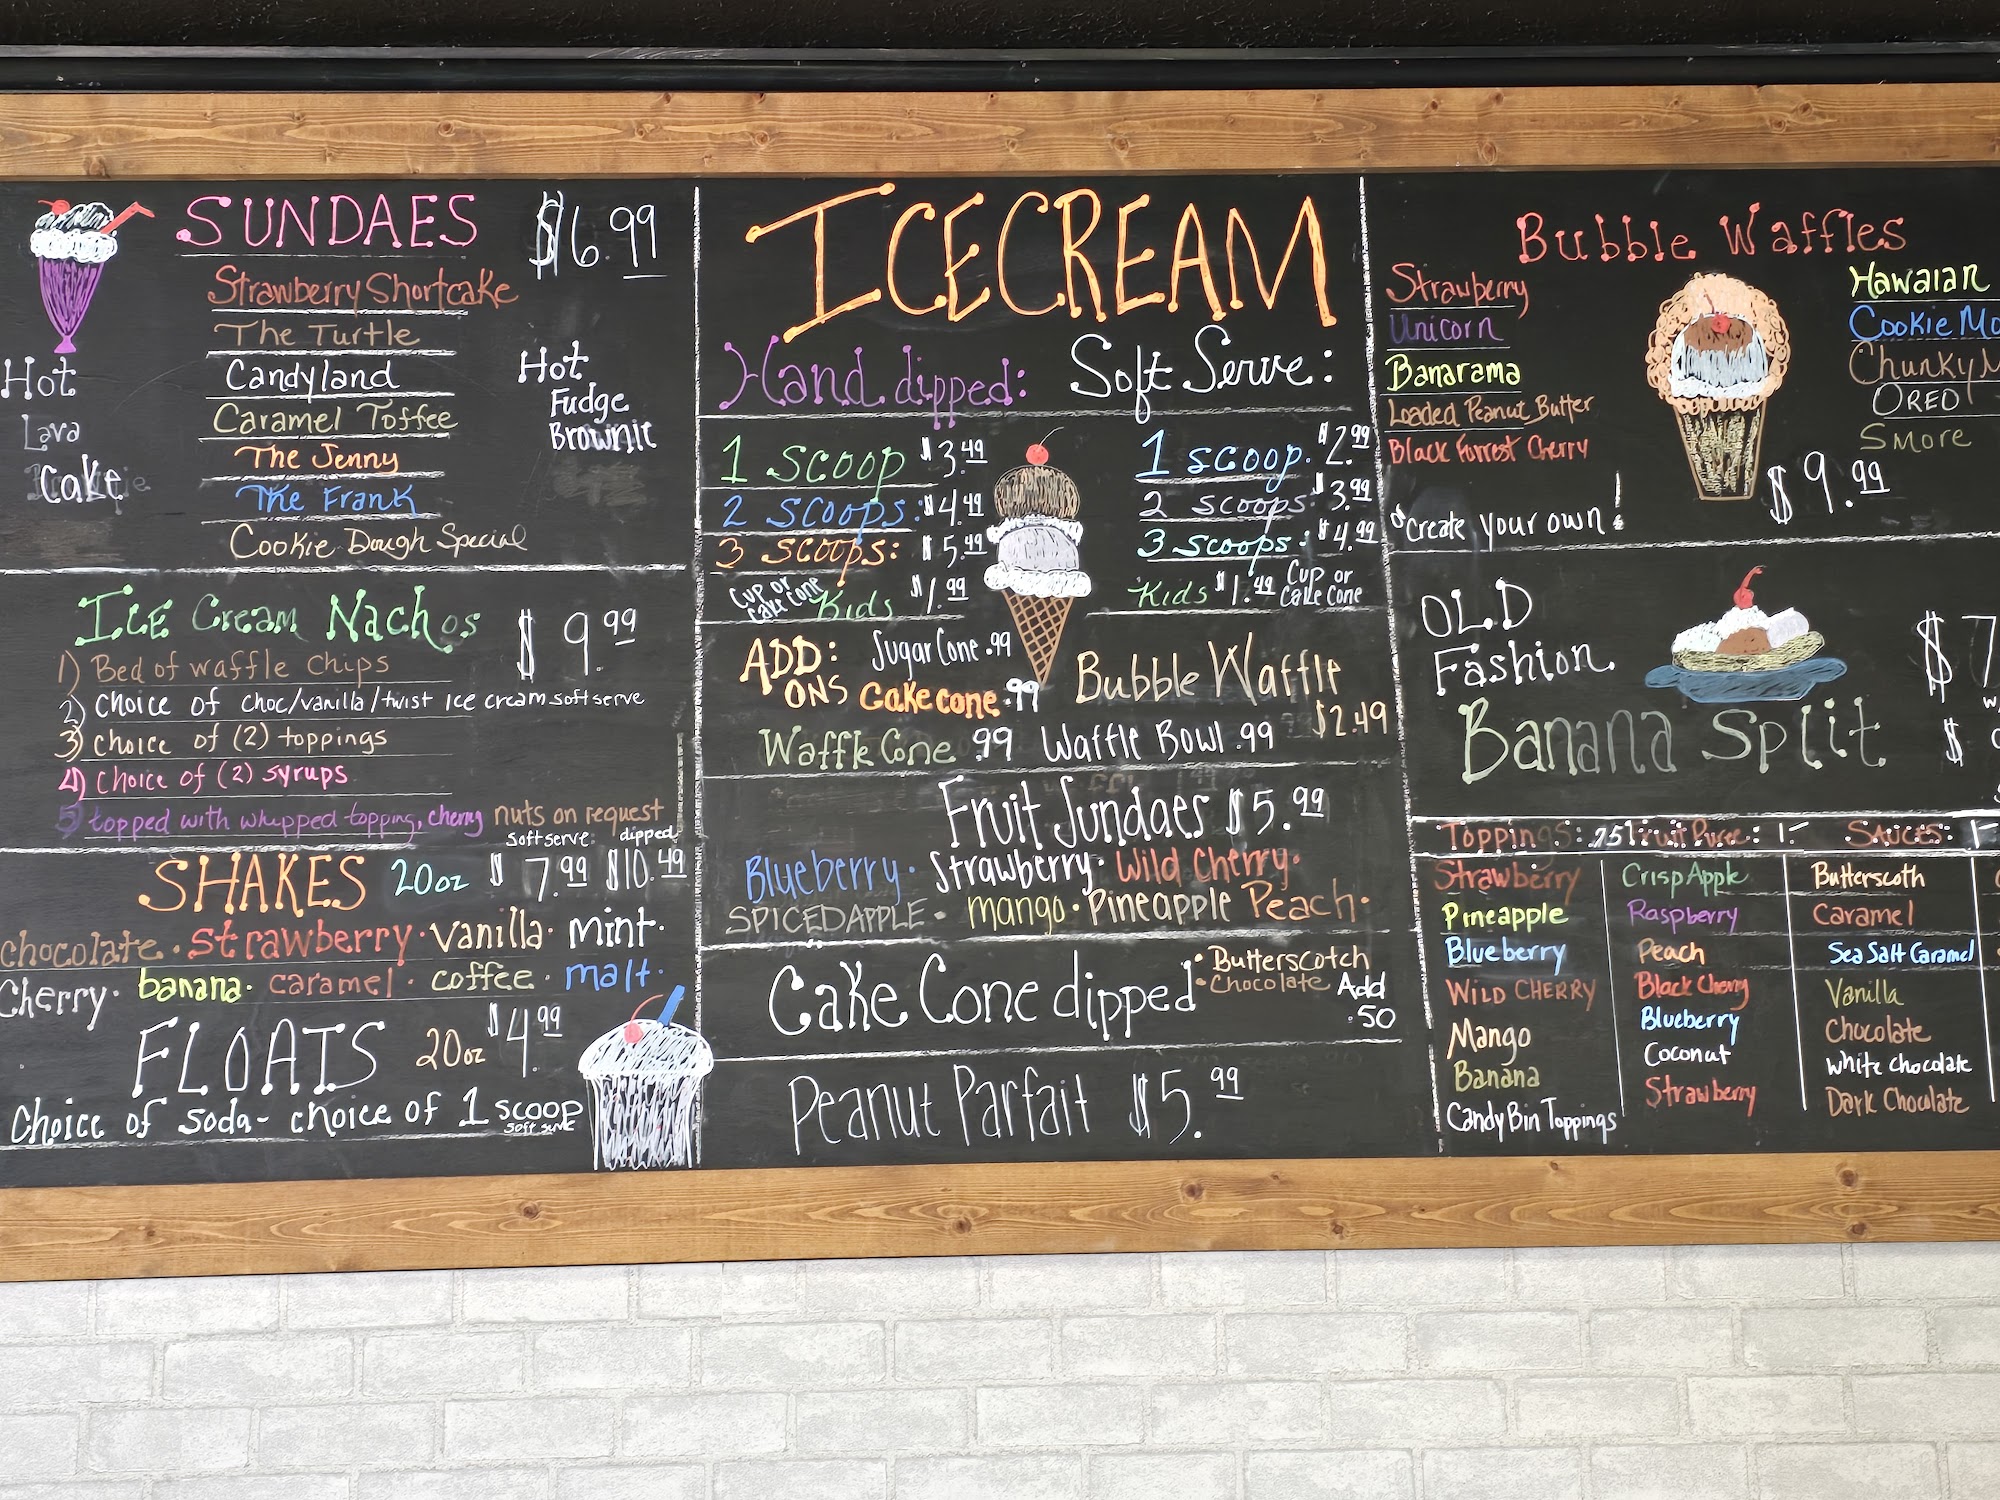 SUNDAES $6.99
Strawberry Shortcake
The Turtle
Candyland
Caramel Toffee
The Jenny
The Frank
Cookie Dough Special
Hot
Lava
Cake
Hot
Fudge
Brownie
ICE Cream Nachos $9.99
1) Bed of waffle chips
2) Choice of choc/vanilla/twist ice cream soft serve
3) choice of (2) toppings
4) choice of (2) syrups
5) topped with whipped topping, cherry nuts on request
soft serve dipped
SHAKES 20oz $7.99 $10.49
chocolate · strawberry · vanilla · mint ·
Cherry · banana · caramel · coffee · malt ·
FLOATS 20oz $4.99
Choice of soda - choice of 1 scoop
soft serve
ICECREAM
Hand dipped:
1 SCOOP $3.49
2 SCOOPS: $4.49
3 SCOOPS: $5.49
Cup or
Cake Cone Kids $1.99
Soft Serve:
1 scoop. $2.99
2 scoops: $3.99
3 scoops: $4.99
Kids $1.49 Cup or
Cake Cone
ADD:
ONS
Sugar Cone .99
Cake cone .99
Bubble Waffle
$2.49
Waffle Cone .99 Waffle Bowl .99
Fruit Sundaes $5.99
Blueberry · Strawberry · Wild Cherry ·
SPICED APPLE · mango · Pineapple Peach ·
Cake Cone dipped
· Butterscotch
· Chocolate
Add
.50
Peanut Parfait $5.99
Bubble Waffles
Strawberry
Unicorn
Banarama
Loaded Peanut Butter
Black Forrest Cherry
or create your own!
Hawaian
Cookie Mo
Chunky M
OREO
Smore
$9.99
OLD
Fashion
Banana Split
$7
$
Toppings: .75 Fruit Puree: 1- Sauces: 1-
Strawberry
Pineapple
Blueberry
WILD CHERRY
Mango
Banana
Candy Bin Toppings
Crisp Apple
Raspberry
Peach
Black Cherry
Blueberry
Coconut
Strawberry
Butterscoth
Caramel
Sea Salt Caramel
Vanilla
Chocolate
White Chocolate
Dark Chocolate